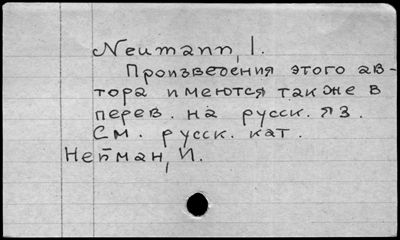 Neumann, I.
Произведения этого ав-
тора имеются также в
перев. на русск. яз.
См. русск. кат.
Нейман, И.